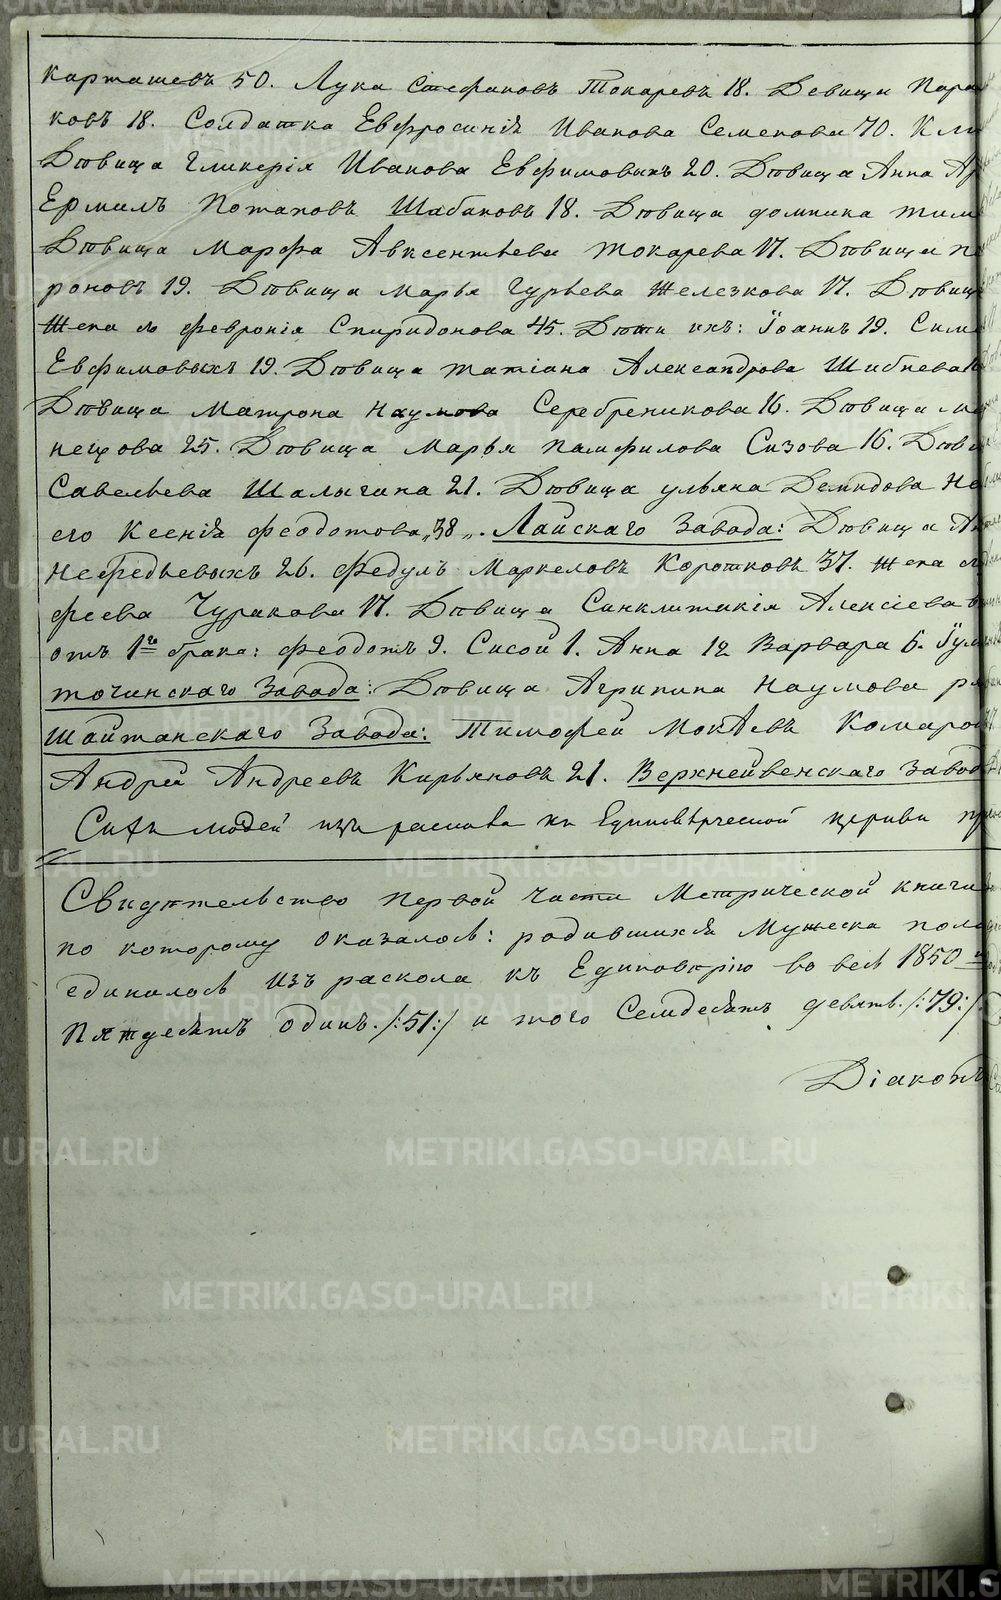 Карташевъ 50. Лука Стефановъ Токаревъ 18. Девица Пара
ковъ 18. Солдатка Евфросинія Иванова Семенова 70. Кли
Дѣвица Гликерія Иванова Евфимовыхъ 20. Дѣвица Анна Ар
Ермилъ Потаповъ Шабановъ 18. Дѣвица Домника Тим
Дѣвица Марфа Авксентьева Токарева 17. Дѣвица
роновъ 19. Дѣвица Марья Гурьева Железкова 17. Дѣвица
Жена ѣ Февронія Спиридонова 45. Дѣти ихъ: Іоаннъ 19. Сим
Евфимовыхъ 19. Дѣвица Татіана Александрова Шибнева
Дѣвица Матрона Наумова Серебреникова 16. Дѣвица
нецова 25. Дѣвица Марья Памфилова Сизова 16. Дѣви
Савельева Шалыгина 21. Дѣвица Ульяна Демидова
его Ксенія Феодотова „38„. Лайскаго Завода: Дѣвица
Нефедьевыхъ 26. Федулъ Маркеловъ Коротковъ 37. Жена
феева Чуракова 17. Дѣвица Синклитикія Алексіева
отъ 1го брака: Феодотъ 9. Сисой 1. Анна 12 Варвара 6. Іул
точинскаго Завода: Дѣвица Агрипина Наумова
Шайтанскаго Завода: Тимофей Мокѣевъ Комаров
Андрей Андреевъ Кирьяновъ 21. Верхнейвенскаго Завод
Сихъ людей изъ раскола къ Единовѣрческой церкви
Свидѣтельство первой части Метрической книги
по которому оказалось: родившихся Мужеска пола
единилось изъ раскола къ Единовѣрію во весь 1850
Пятдесятъ одинъ. /:51:/ и того Семдесятъ девять. /:79:/
Діаконъ
METRIKI.GASO-URAL.RU